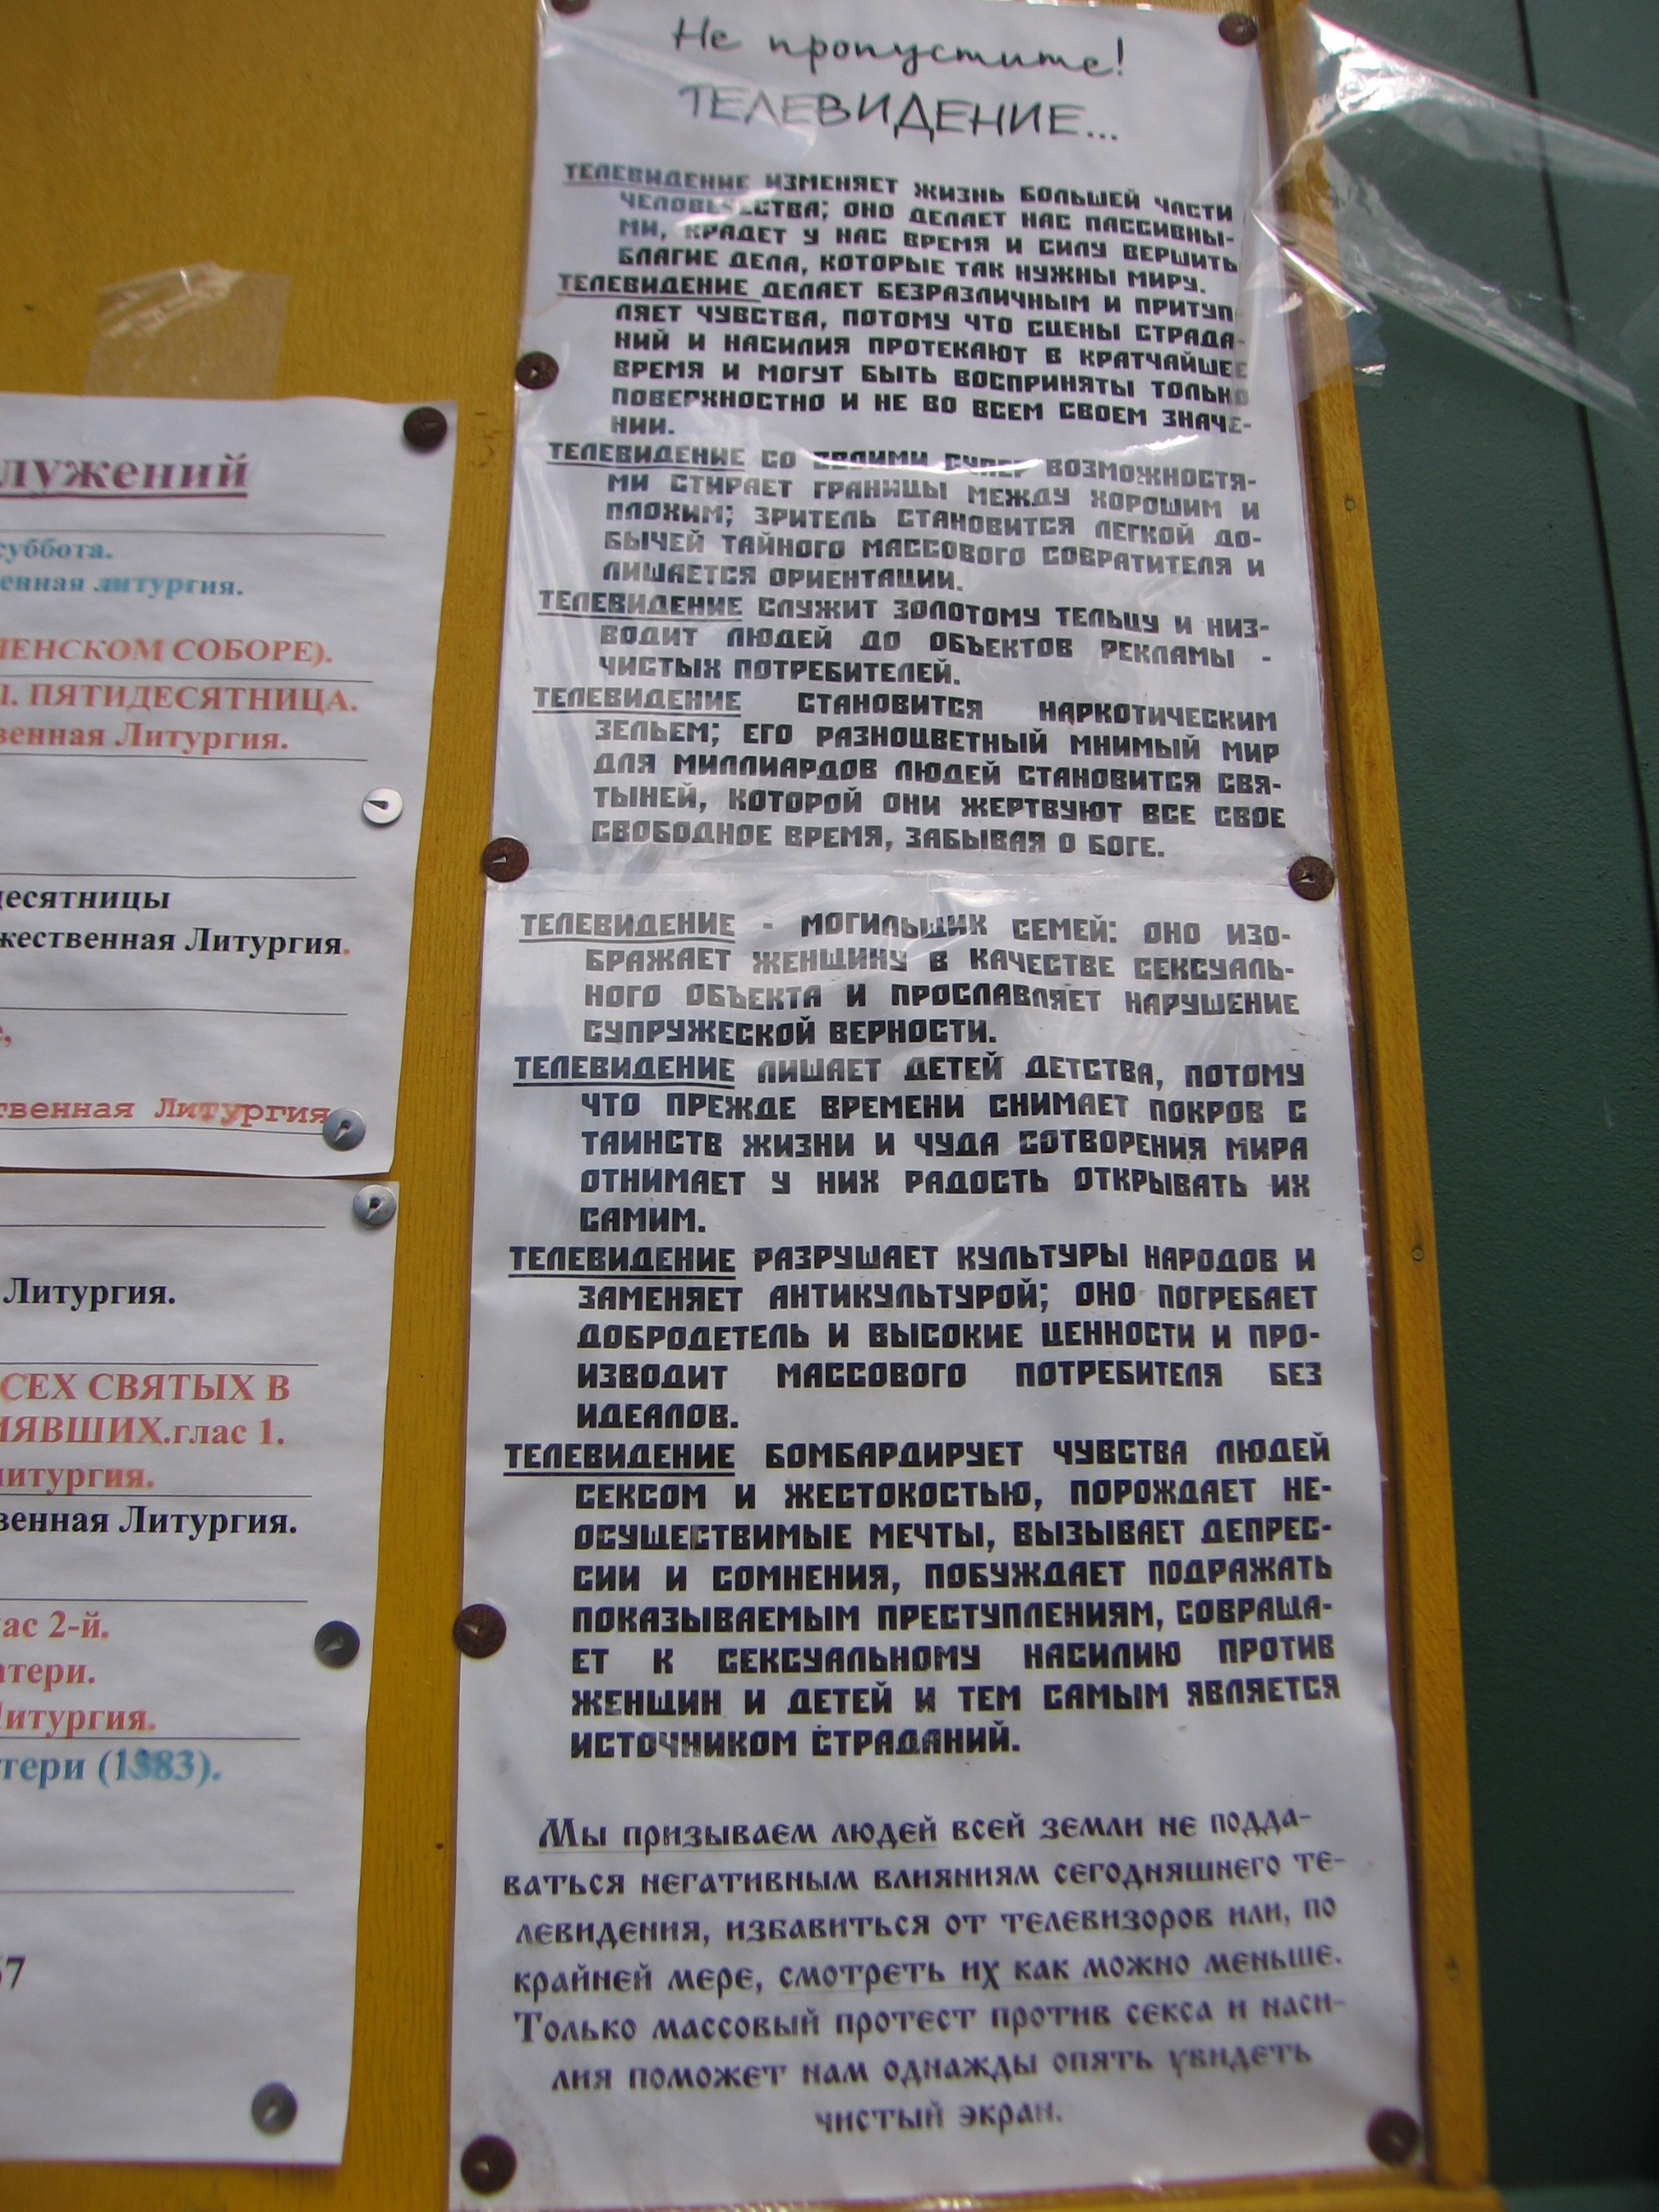 лужений
суббота.
енная литургия.
ЛЕНСКОМ СОБОРЕ).
ПЯТИДЕСЯТНИЦА.
венная Литургия.
десятницы
жественная Литургия.
твенная Литургия
Литургия.
СЕХ СВЯТЫХ В
ИЯВШИХ.глас 1.
литургия.
венная Литургия.
ас 2-й.
атери.
Литургия.
тери (1383).
57
Не пропустите!
ТЕЛЕВИДЕНИЕ...
ТЕЛЕВИДЕНИЕ ИЗМЕНЯЕТ ЖИЗНЬ БОЛЬШЕЙ ЧАСТИ
ЧЕЛОВЕЧЕСТВА; ОНО ДЕЛАЕТ НАС ПАССИВНЫ-
МИ, КРАДЕТ У НАС ВРЕМЯ И СИЛУ ВЕРШИТЬ
БЛАГИЕ ДЕЛА, КОТОРЫЕ ТАК НУЖНЫ МИРУ.
ТЕЛЕВИДЕНИЕ ДЕЛАЕТ БЕЗРАЗЛИЧНЫМ И ПРИТУП-
ЛЯЕТ ЧУВСТВА, ПОТОМУ ЧТО СЦЕНЫ СТРАДА-
НИЙ И НАСИЛИЯ ПРОТЕКАЮТ В КРАТЧАЙШЕЕ
ВРЕМЯ И МОГУТ БЫТЬ ВОСПРИНЯТЫ ТОЛЬКО
ПОВЕРХНОСТНО И НЕ ВО ВСЕМ СВОЕМ ЗНАЧЕ-
НИИ.
ТЕЛЕВИДЕНИЕ СО СВОИМИ СУПЕР ВОЗМОЖНОСТЯ-
МИ СТИРАЕТ ГРАНИЦЫ МЕЖДУ ХОРОШИМ И
ПЛОХИМ; ЗРИТЕЛЬ СТАНОВИТСЯ ЛЕГКОЙ ДО-
БЫЧЕЙ ТАЙНОГО МАССОВОГО СОВРАТИТЕЛЯ И
ЛИШАЕТСЯ ОРИЕНТАЦИИ.
ТЕЛЕВИДЕНИЕ СЛУЖИТ ЗОЛОТОМУ ТЕЛЬЦУ И НИЗ-
ВОДИТ ЛЮДЕЙ ДО ОБЪЕКТОВ РЕКЛАМЫ -
ЧИСТЫХ ПОТРЕБИТЕЛЕЙ.
ТЕЛЕВИДЕНИЕ СТАНОВИТСЯ НАРКОТИЧЕСКИМ
ЗЕЛЬЕМ; ЕГО РАЗНОЦВЕТНЫЙ МНИМЫЙ МИР
ДЛЯ МИЛЛИАРДОВ ЛЮДЕЙ СТАНОВИТСЯ СВЯ-
ТЫНЕЙ, КОТОРОЙ ОНИ ЖЕРТВУЮТ ВСЕ СВОЕ
СВОБОДНОЕ ВРЕМЯ, ЗАБЫВАЯ О БОГЕ.
ТЕЛЕВИДЕНИЕ - МОГИЛЬЩИК СЕМЕЙ: ОНО ИЗО-
БРАЖАЕТ ЖЕНЩИНУ В КАЧЕСТВЕ СЕКСУАЛЬ-
НОГО ОБЪЕКТА И ПРОСЛАВЛЯЕТ НАРУШЕНИЕ
СУПРУЖЕСКОЙ ВЕРНОСТИ.
ТЕЛЕВИДЕНИЕ ЛИШАЕТ ДЕТЕЙ ДЕТСТВА, ПОТОМУ
ЧТО ПРЕЖДЕ ВРЕМЕНИ СНИМАЕТ ПОКРОВ С
ТАИНСТВ ЖИЗНИ И ЧУДА СОТВОРЕНИЯ МИРА
ОТНИМАЕТ У НИХ РАДОСТЬ ОТКРЫВАТЬ ИХ
САМИМ.
ТЕЛЕВИДЕНИЕ РАЗРУШАЕТ КУЛЬТУРЫ НАРОДОВ И
ЗАМЕНЯЕТ АНТИКУЛЬТУРОЙ; ОНО ПОГРЕБАЕТ
ДОБРОДЕТЕЛЬ И ВЫСОКИЕ ЦЕННОСТИ И ПРО-
ИЗВОДИТ МАССОВОГО ПОТРЕБИТЕЛЯ БЕЗ
ИДЕАЛОВ.
ТЕЛЕВИДЕНИЕ БОМБАРДИРУЕТ ЧУВСТВА ЛЮДЕЙ
СЕКСОМ И ЖЕСТОКОСТЬЮ, ПОРОЖДАЕТ НЕ-
ОСУЩЕСТВИМЫЕ МЕЧТЫ, ВЫЗЫВАЕТ ДЕПРЕС-
СИИ И СОМНЕНИЯ, ПОБУЖДАЕТ ПОДРАЖАТЬ
ПОКАЗЫВАЕМЫМ ПРЕСТУПЛЕНИЯМ, СОВРАЩА-
ЕТ К СЕКСУАЛЬНОМУ НАСИЛИЮ ПРОТИВ
ЖЕНЩИН И ДЕТЕЙ И ТЕМ САМЫМ ЯВЛЯЕТСЯ
ИСТОЧНИКОМ СТРАДАНИЙ.
Мы призываем людей всей земли не подда-
ваться негативным влияниям сегодняшнего те-
левидения, избавиться от телевизоров или, по
крайней мере, смотреть их как можно меньше.
Только массовый протест против секса и наси-
лия поможет нам однажды опять увидеть
чистый экран.